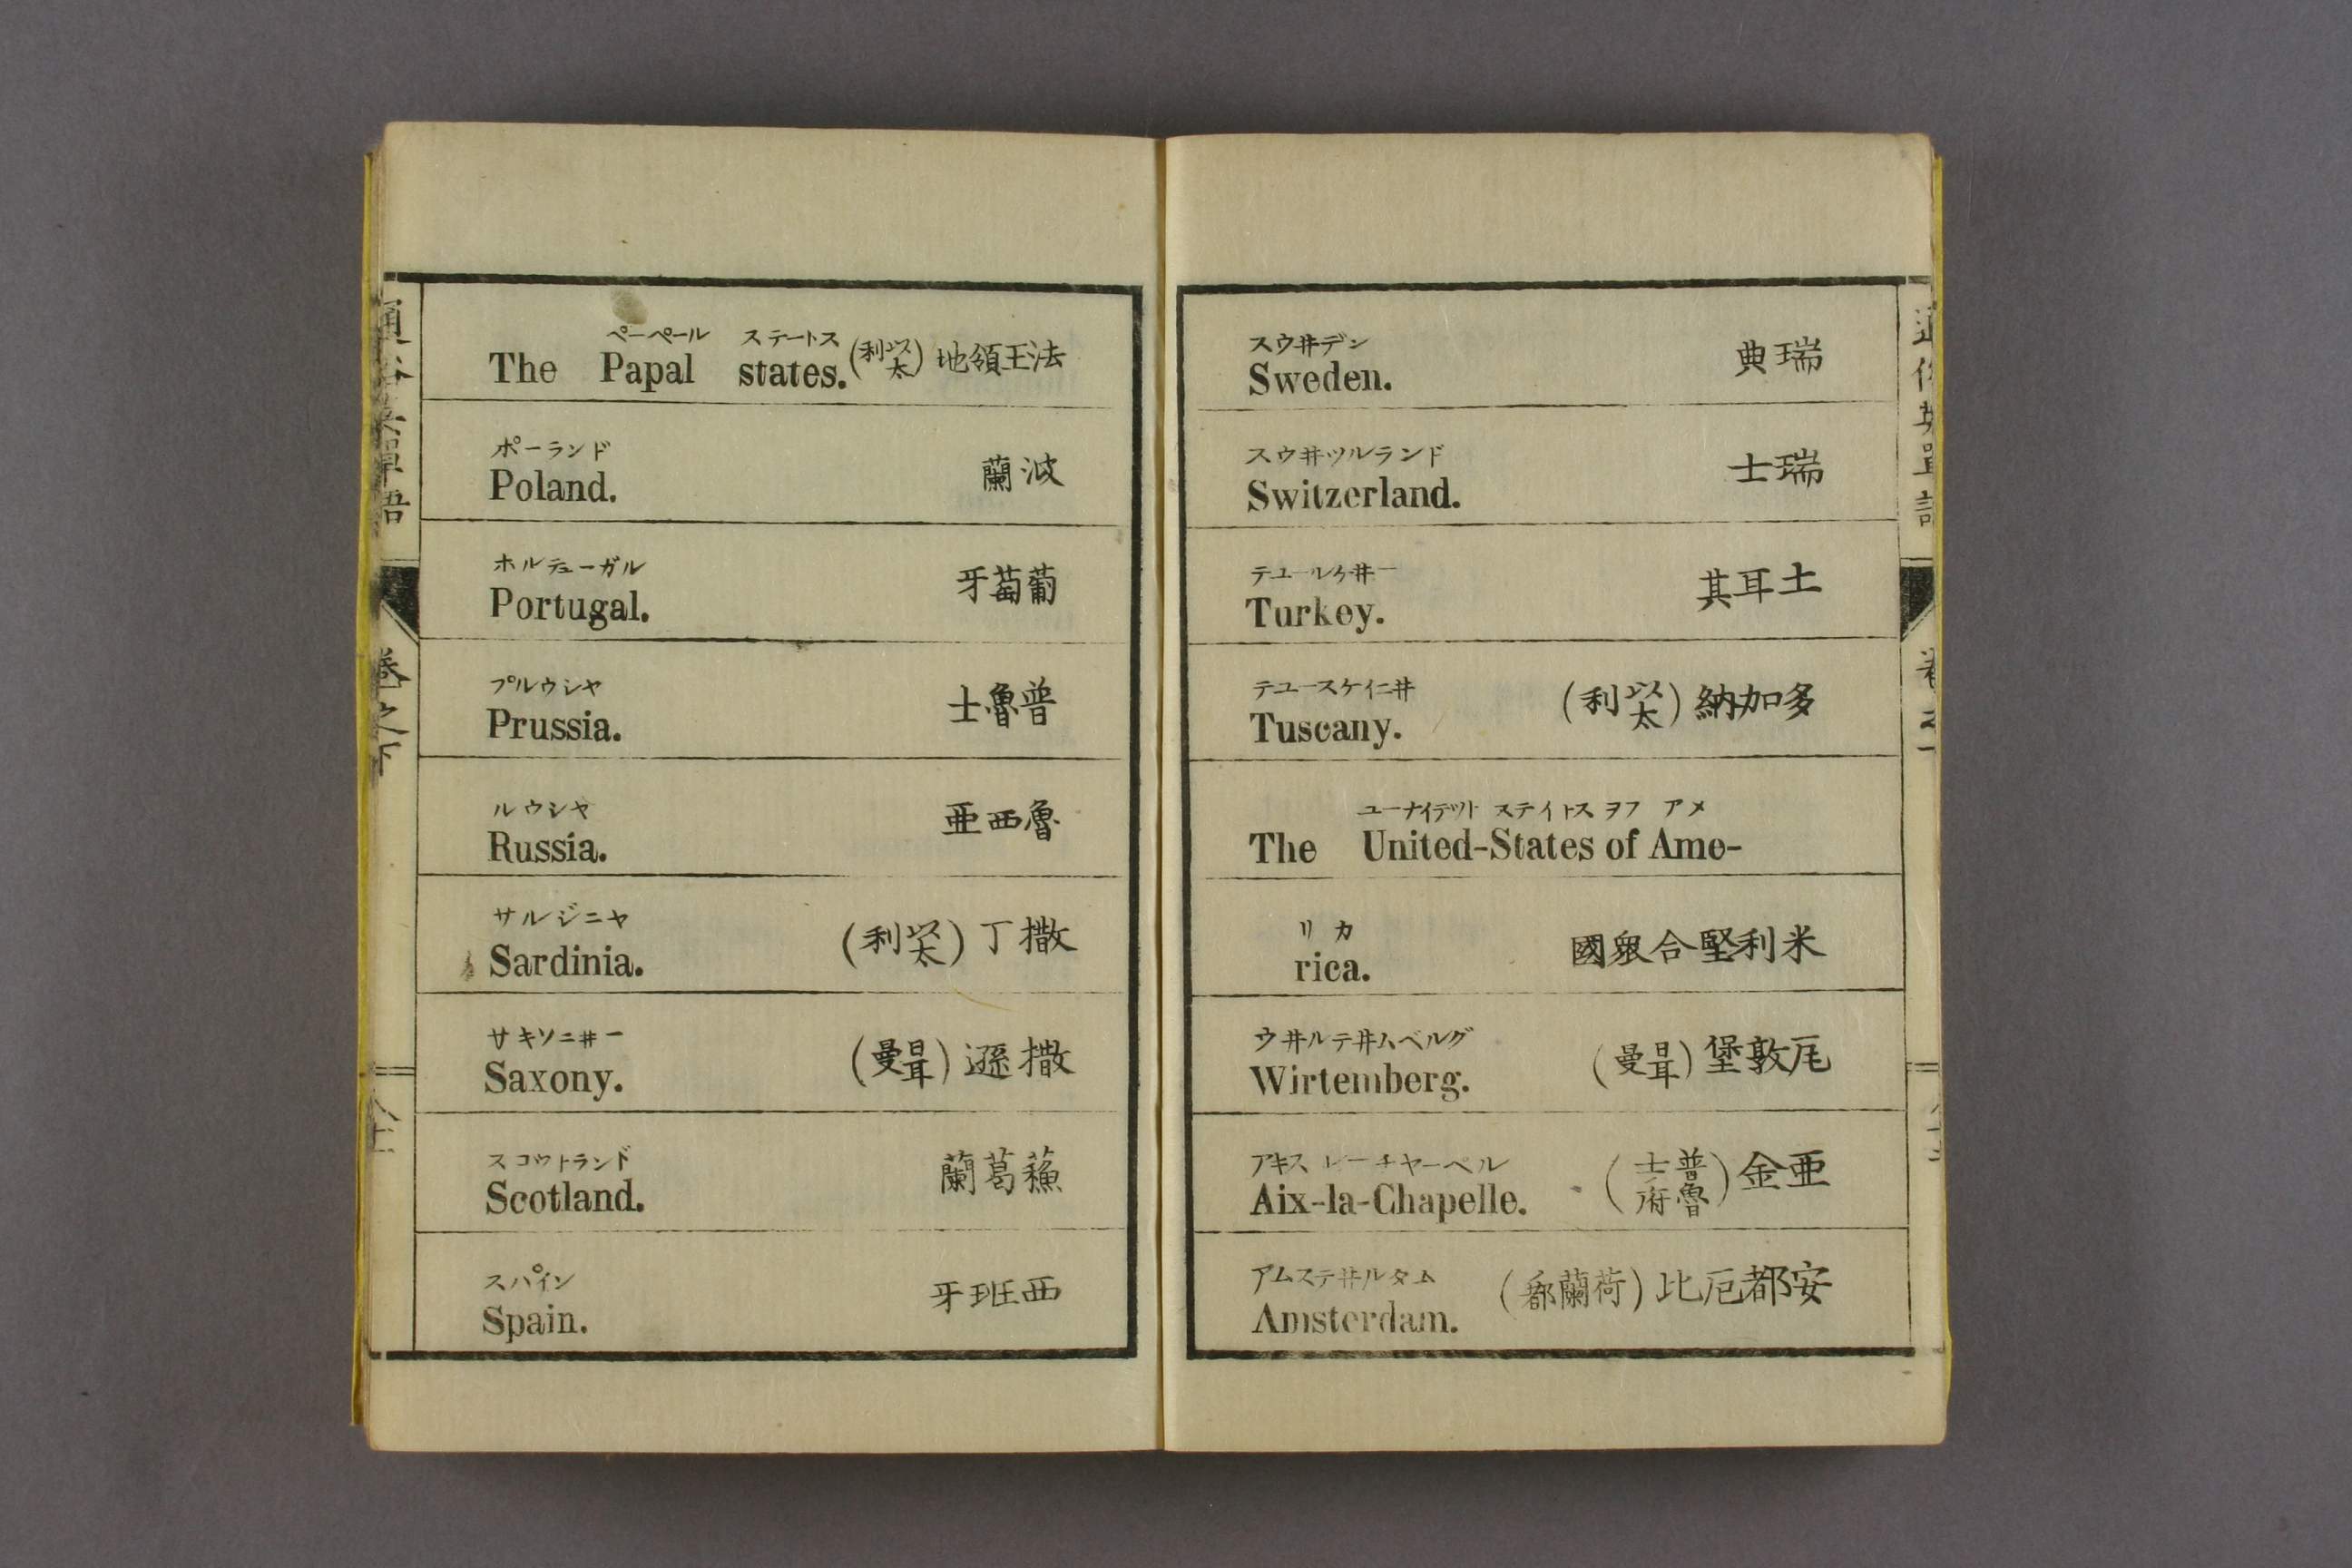 ペーペール ステートス
The Papal states. (利以太) 地領王法
ポーランド
Poland. 蘭波
ホルテューガル
Portugal. 牙萄葡
プルウシヤ
Prussia. 士魯普
ルウシヤ
Russia. 亜西魯
サルジニヤ
Sardinia. (利以太) 丁撒
サキソニ井ー
Saxony. (曼日耳) 遜撒
スコウトランド
Scotland. 蘭葛蘓
スパイン
Spain. 牙班西
スウ井デン
Sweden. 典瑞
スウ井ツルランド
Switzerland. 士瑞
テユールケ井ー
Turkey. 其耳土
テユースケイニ井
Tuscany. (利以太) 納加多
ユーナイテツト ステイトス ヲフ アメ
The United-States of Ame-
リカ
rica. 國衆合堅利米
ウ井ルテ井ムベルグ
Wirtemberg. (曼日耳) 堡敦尾
アキス レーチヤーペル
Aix-la-Chapelle. (普魯士府) 金亜
アムステ井ルタム
Amsterdam. (都蘭荷) 比厄都安